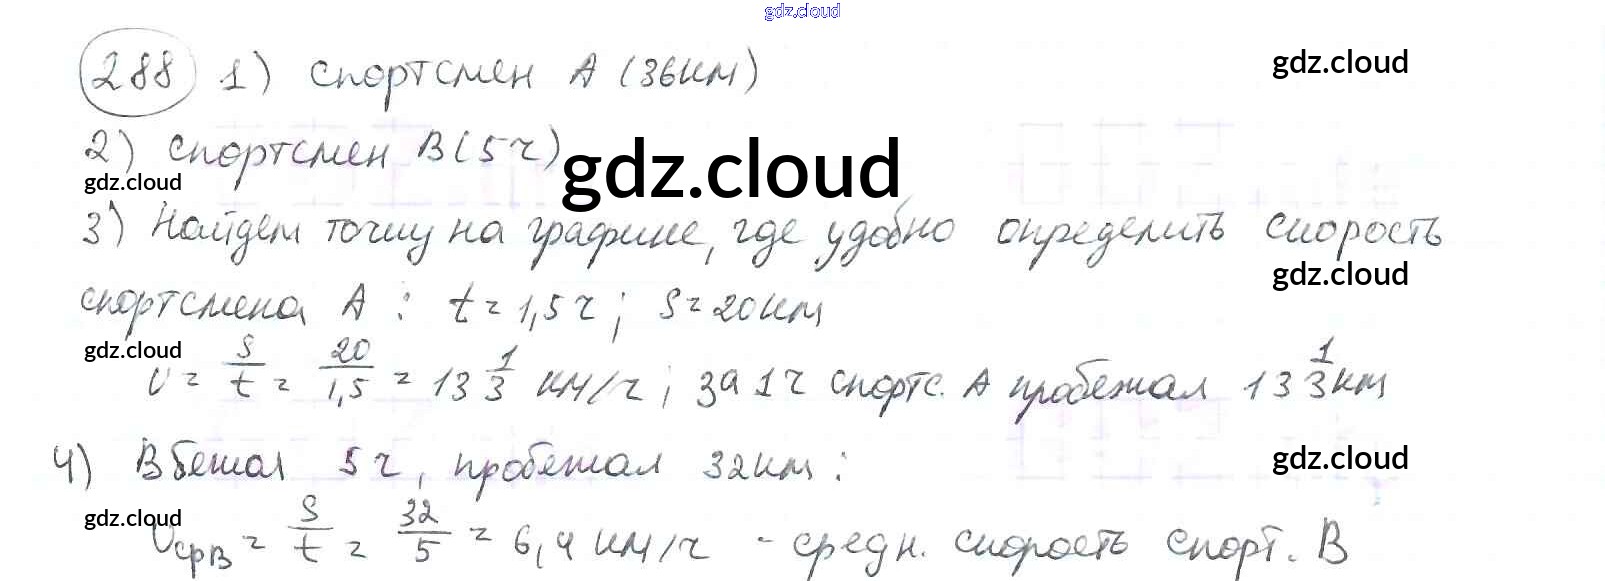 gdz.cloud
288 1) спортсмен А (36км) gdz.cloud
2) спортсмен В (5 ч) gdz.cloud
gdz.cloud
3) Найдем точку на графике, где удобно определить скорость
gdz.cloud
спортсмена А : t = 1,5 ч ; S = 20 км
gdz.cloud
v = S/t = 20/1,5 = 13 1/3 км/ч ; за 1 ч спортс. А пробежал 13 1/3 км
4) В бежал 5 ч, пробежал 32 км : gdz.cloud
gdz.cloud
υсрВ = S/t = 32/5 = 6,4 км/ч - средн. скорость спорт. В